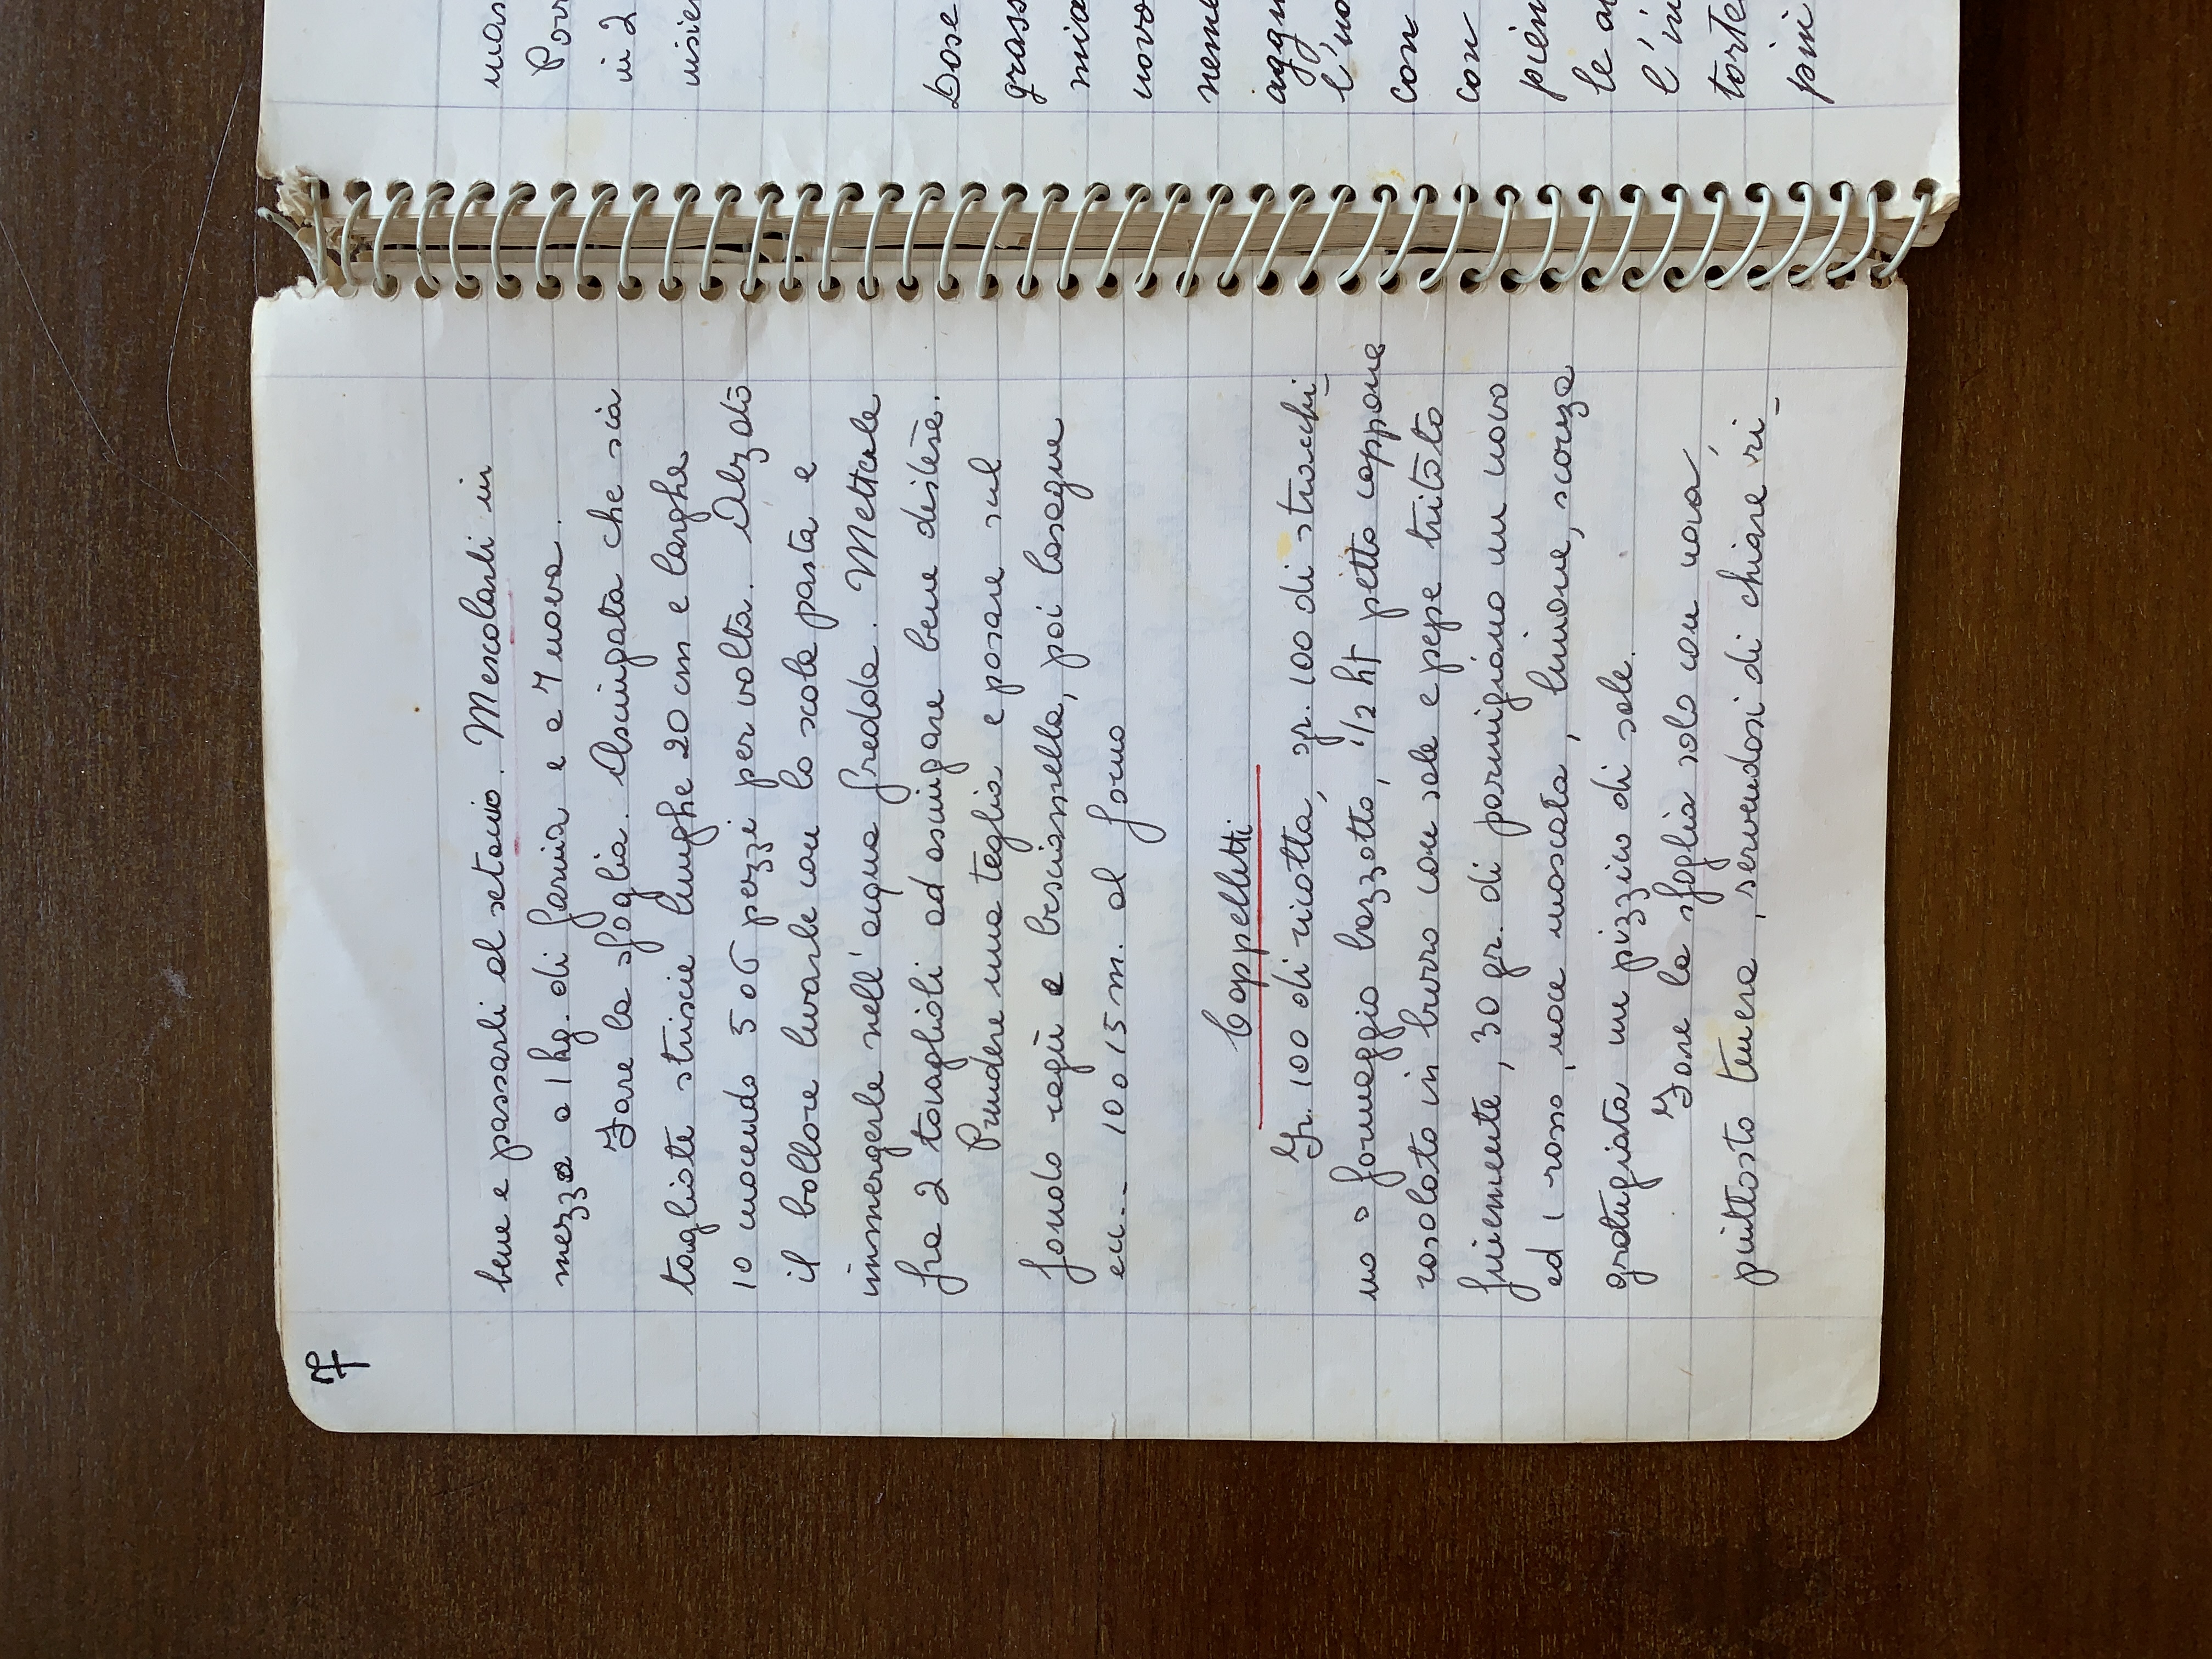 7
bene e passarli al setacio. Mescolarli in
mezzo a 1 kg. di farina e a 7 uova.
Fare la sfoglia. Asciugata che sia
tagliate striscie lunghe 20 cm e larghe
10 cuocendo 5 o 6 pezzi per volta. Alzato
il bollore levarle con lo scola pasta e
immergerle nell'acqua fredda. Metterle
fra 2 tovaglioli ad asciugare bene distese.
Prendere una teglia e posare sul
fondo ragù e besciamella, poi lasagne
ecc.. 10 o 15 m. al forno
Cappelletti
Gr. 100 di ricotta, gr. 100 di stracchi_
no o formaggio bazzotto, 1/2 hT petto cappone
rosolato in burro con sale e pepe tritato
finemente, 30 gr. di parmigiano un uovo
ed 1 rosso, noce moscata, limone, scorza
gratugiata un pizzico di sale.
Fare la sfoglia solo con uova,
piuttosto tenera, servendosi di chiare ri_
mas
Porr
in 2
Dose
grass
mia
uovo
neme
aggiu
l'uo
con
con
pien
le
l'in
torte
più